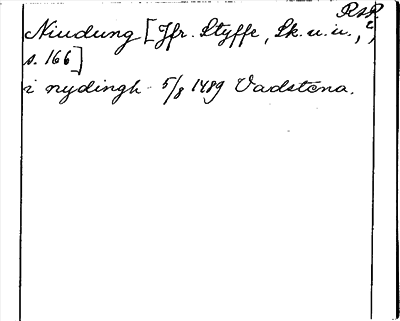 RAP.
Niudung [Jfr. Styffe, Sk. u. u.,²,
s. 166]
i nydingh 5/8 1489 Vadstena.